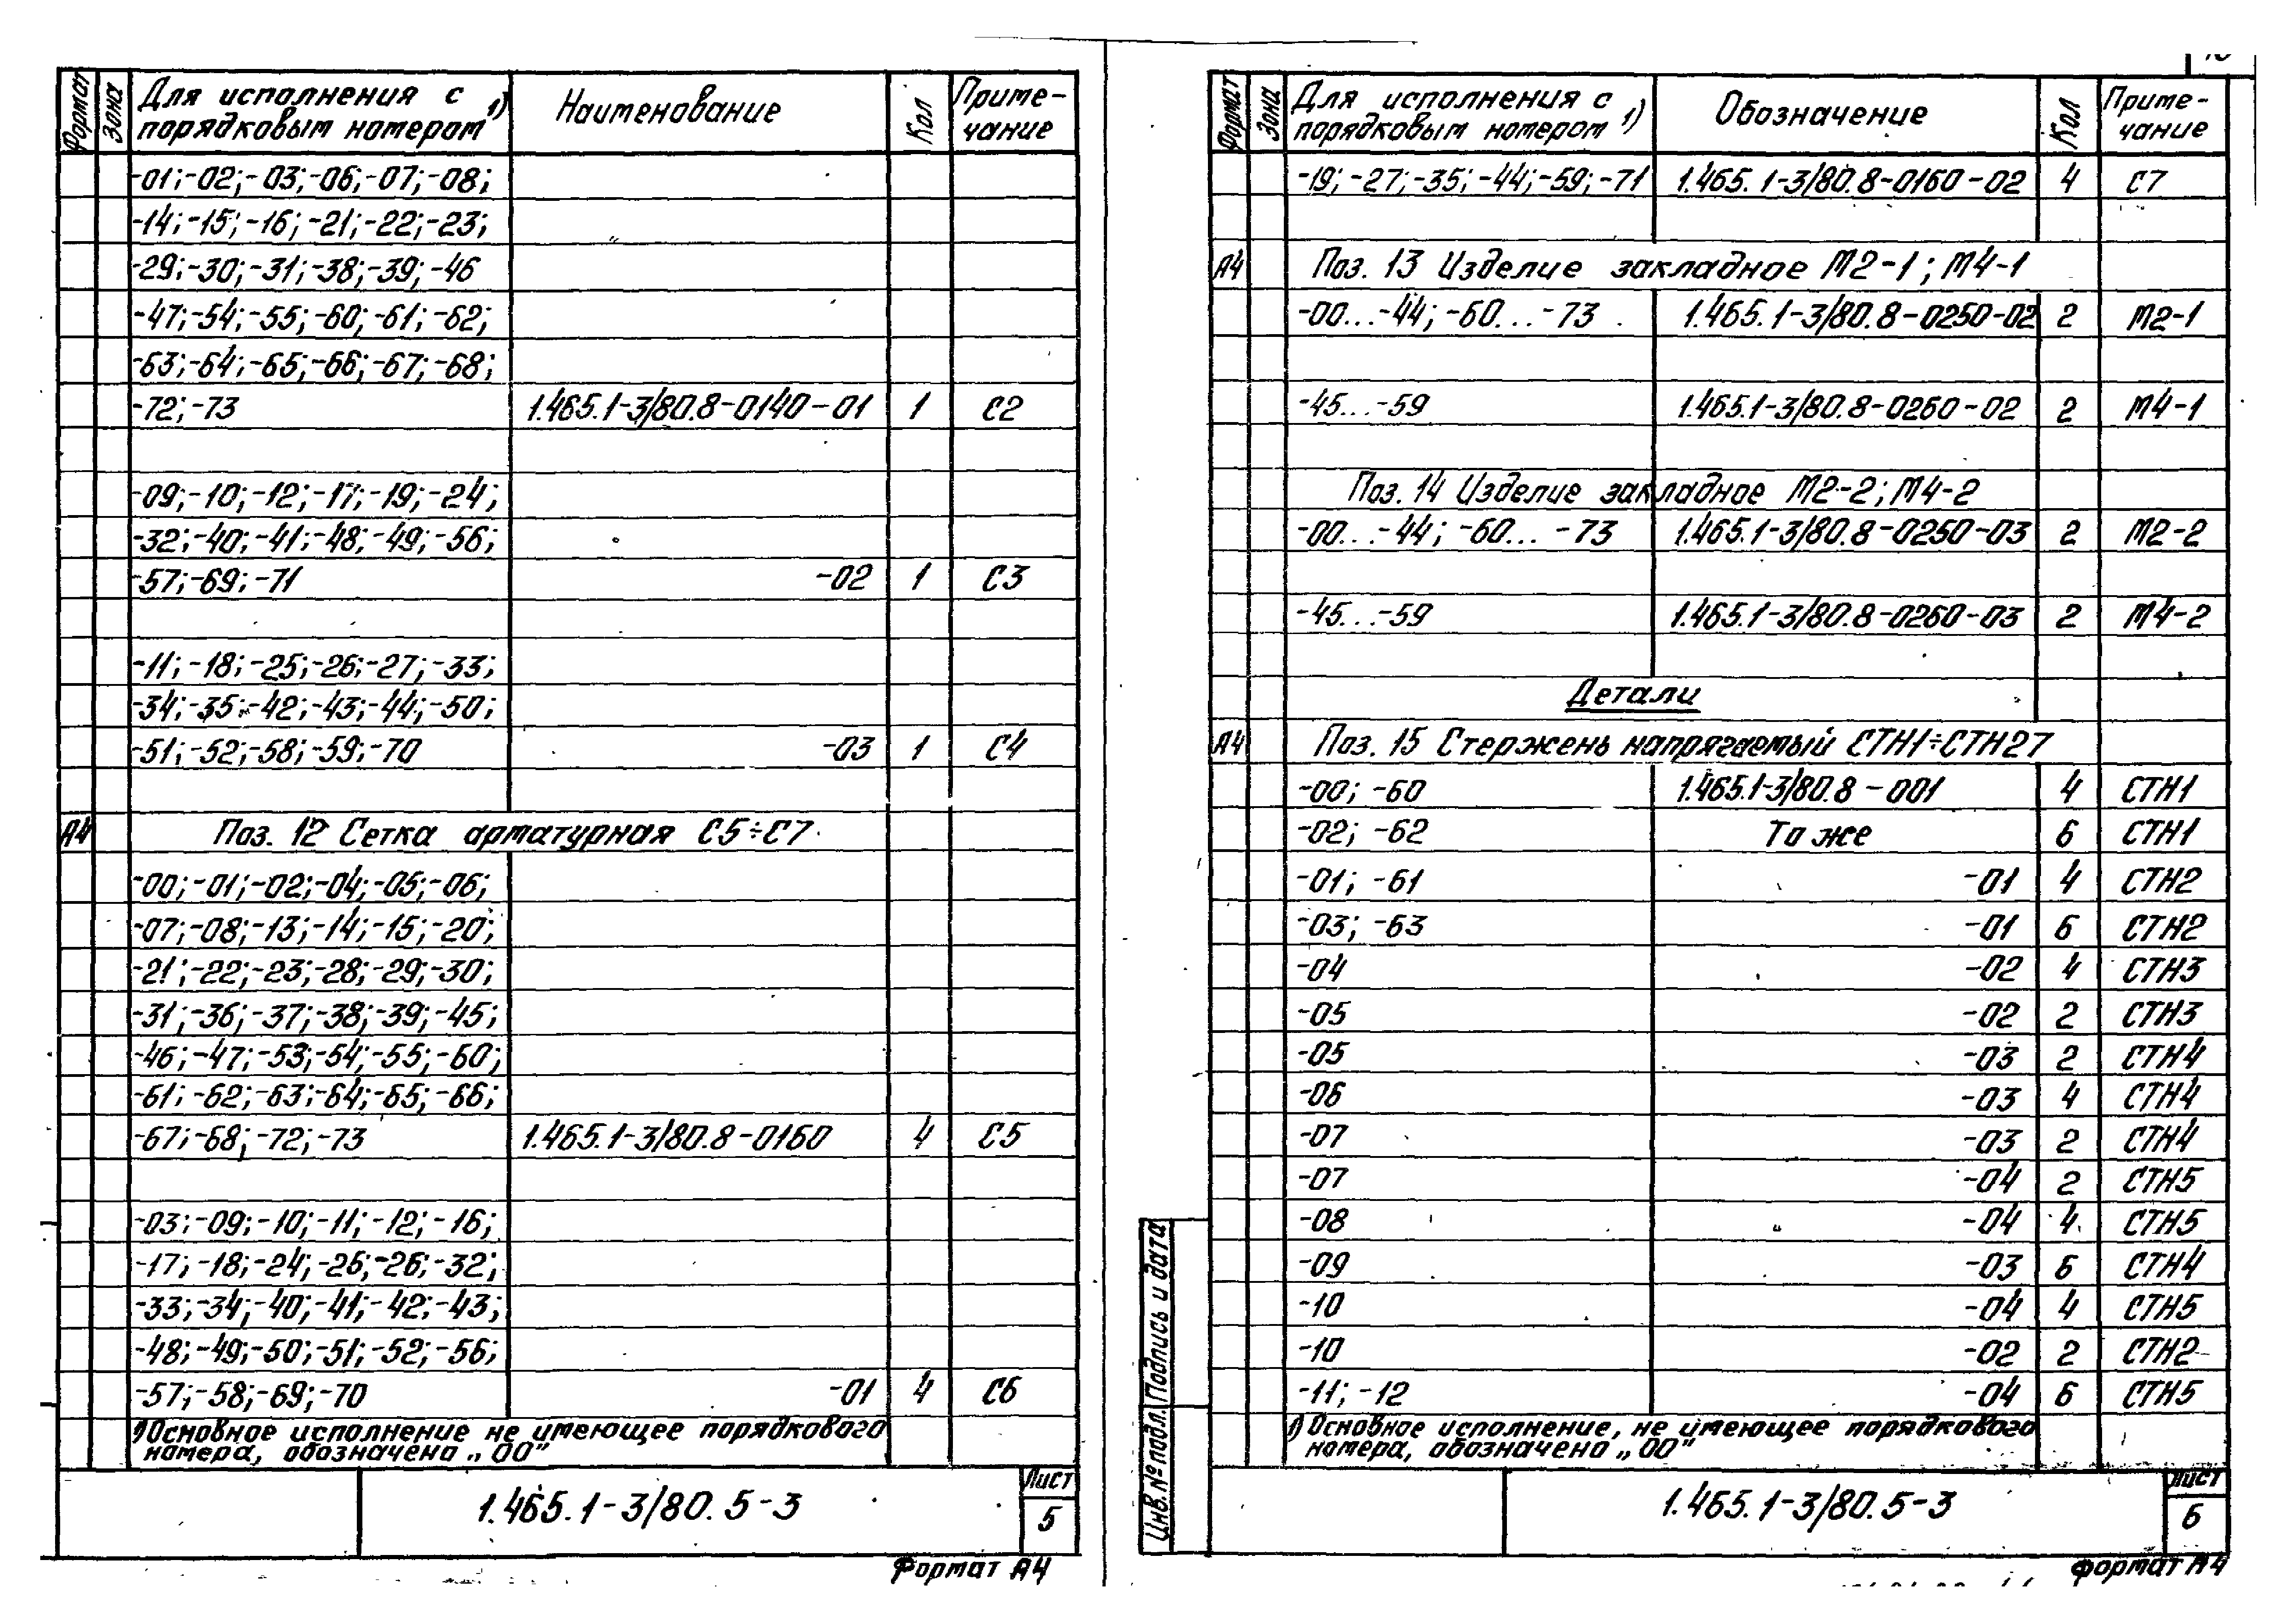 Формат Зона Для исполнения с порядковым номером 1) Наименование Кол Приме-чание
-01;-02;-03;-06;-07;-08;
-14;-15;-16;-21;-22;-23;
-29;-30;-31;-38;-39;-46
-47;-54;-55;-60;-61;-62;
-63;-64;-65;-66;-67;-68;
-72;-73 1.465.1-3/80.8-0140-01 1 С2
-09;-10;-12;-17;-19;-24;
-32;-40;-41;-48;-49;-56;
-57;-69;-71 -02 1 С3
-11;-18;-25;-26;-27;-33;
-34;-35;-42;-43;-44;-50;
-51;-52;-58;-59;-70 -03 1 С4
А4 Поз. 12 Сетка арматурная С5÷С7
-00;-01;-02;-04;-05;-06;
-07;-08;-13;-14;-15;-20;
-21;-22;-23;-28;-29;-30;
-31;-36;-37;-38;-39;-45;
-46;-47;-53;-54;-55;-60;
-61;-62;-63;-64;-65;-66;
-67;-68;-72;-73 1.465.1-3/80.8-0160 4 С5
-03;-09;-10;-11;-12;-16;
-17;-18;-24;-26;-26;-32;
-33;-34;-40;-41;-42;-43;
-48;-49;-50;-51;-52;-56;
-57;-58;-69;-70 -01 4 С6
1) Основное исполнение не имеющее порядкового
номера, обозначено „00"
1.465.1-3/80.5-3
Лист
5
Формат А4
Формат Зона Для исполнения с порядковым номером 1) Обозначение Кол Приме-чание
-19;-27;-35;-44;-59;-71 1.465.1-3/80.8-0160-02 4 С7
А4 Поз. 13 Изделие закладное М2-1; М4-1
-00...-44; -60...-73 1.465.1-3/80.8-0250-02 2 М2-1
-45...-59 1.465.1-3/80.8-0260-02 2 М4-1
Поз. 14 Изделие закладное М2-2; М4-2
-00...-44; -60...-73 1.465.1-3/80.8-0250-03 2 М2-2
-45...-59 1.465.1-3/80.8-0260-03 2 М4-2
Детали
А4 Поз. 15 Стержень напрягаемый СТН1÷СТН27
-00; -60 1.465.1-3/80.8-001 4 СТН1
-02; -62 То же 6 СТН1
-01; -61 -01 4 СТН2
-03; -63 -01 6 СТН2
-04 -02 4 СТН3
-05 -02 2 СТН3
-05 -03 2 СТН4
-06 -03 4 СТН4
-07 -03 2 СТН4
-07 -04 2 СТН5
-08 -04 4 СТН5
-09 -03 6 СТН4
-10 -04 4 СТН5
-10 -02 2 СТН2
-11; -12 -04 6 СТН5
1) Основное исполнение, не имеющее порядкового
номера, обозначено „00"
Инв. № подл. Подпись и дата
1.465.1-3/80.5-3
Лист
6
Формат А4